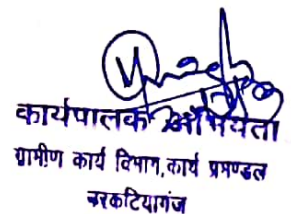 कार्यपालक अभियंता
ग्रामीण कार्य विभाग, कार्य प्रमण्डल
नरकटियागंज